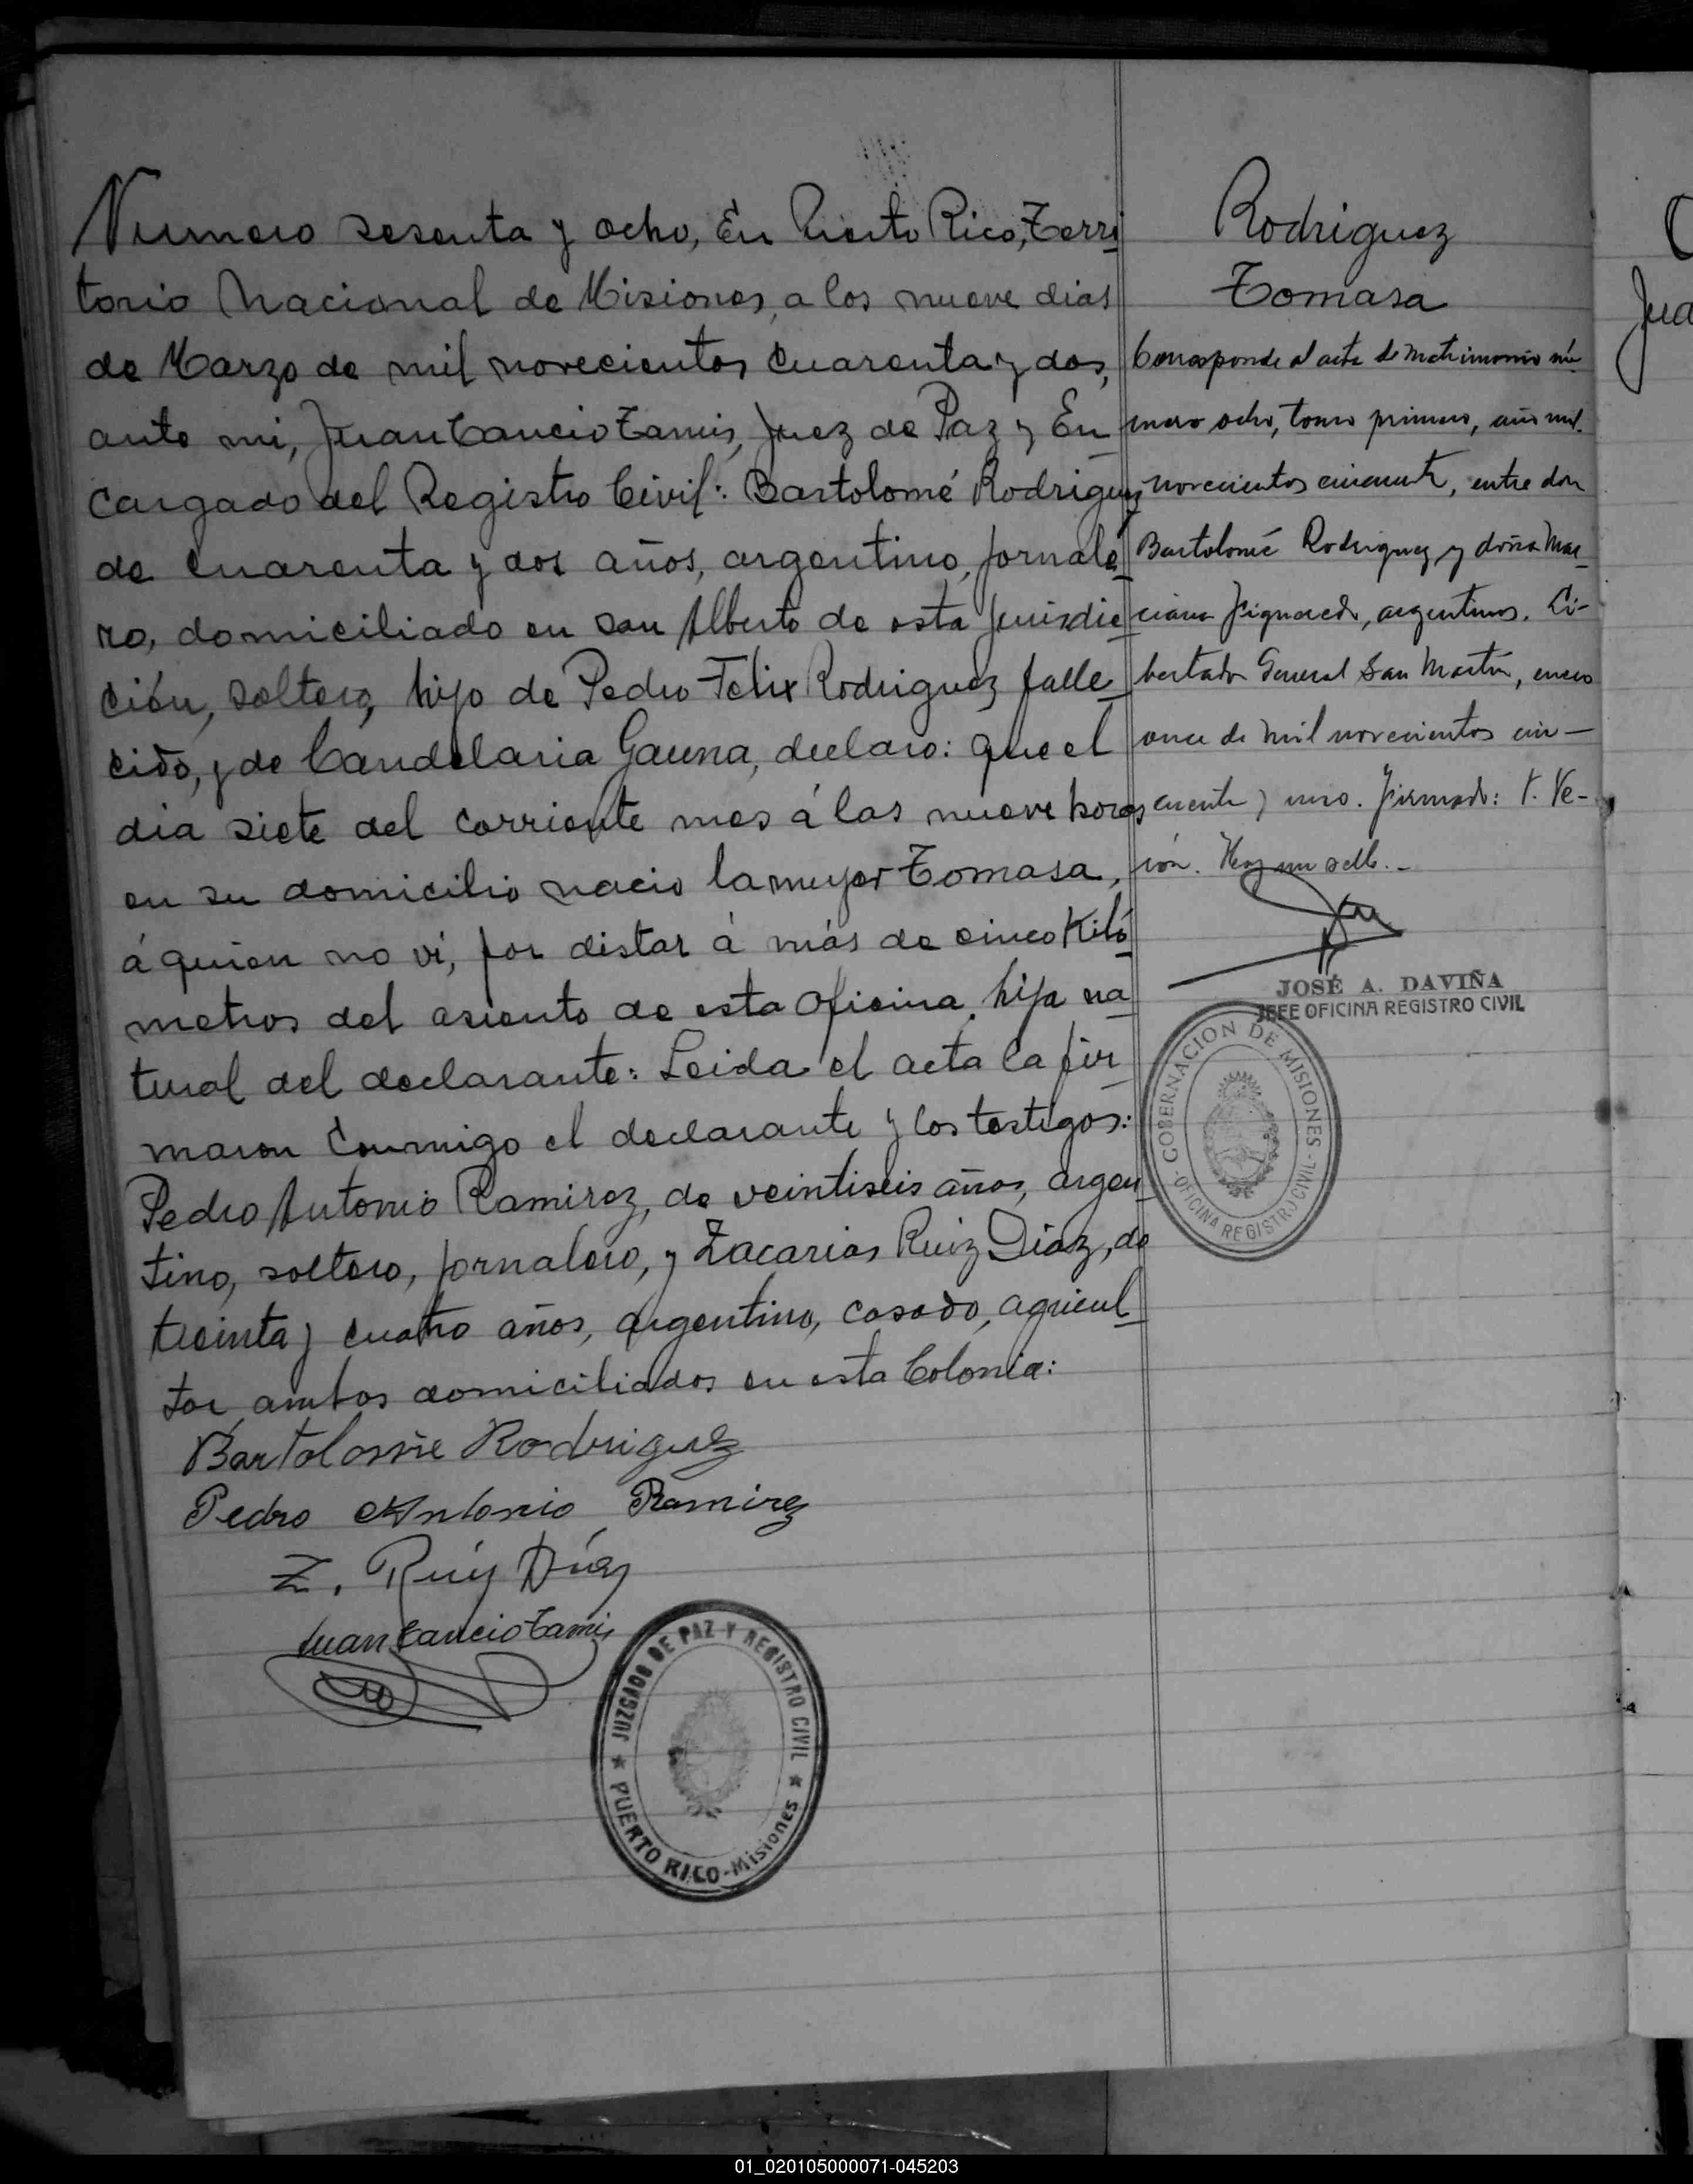 Numero sesenta y ocho, En Puerto Rico, Terri
torio Nacional de Misiones, a los nueve dias
de Marzo de mil novecientos cuarenta y dos,
ante mi, Juan Cancio Tamis, Juez de Paz y En
cargado del Registro Civil: Bartolomé Rodriguez
de cuarenta y dos años, argentino, jornale
ro, domiciliado en San Alberto de esta jurisdic
ción, soltero, hijo de Pedro Felix Rodriguez falle
cido, y de Candelaria Gauna, declaro: que el
dia siete del corriente mes á las nueve horas
en su domicilio nacio la mujer Tomasa,
á quien no vi, por distar á más de cinco Kiló
metros del asiento de esta Oficina, hija na
tural del declarante: Leida el acta la fir
maron conmigo el declarante y los testigos:
Pedro Antonio Ramirez, de veintiseis años, argen
tino, soltero, jornalero, y Zacarias Ruiz Diaz, de
treinta y cuatro años, argentino, casado, agricul
tor ambos domiciliados en esta Colonia:
Bartolome Rodriguez
Pedro Antonio Ramirez
Z. Ruiz Díaz
Juan Cancio Tamis
JUZGADO DE PAZ Y REGISTRO CIVIL
PUERTO RICO - Misiones
Rodriguez
Tomasa
Corresponde al acta de matrimonio nú-
mero ocho, tomo primero, año mil
novecientos cincuenta, entre don
Bartolomé Rodriguez y doña Mar-
ciana Figueredo, argentinos. Li-
bertador General San Martín, enero
once de mil novecientos cin-
cuenta y uno. Firmado: Ve-
rón. Hay un sello.-
JOSÉ A. DAVIÑA
JEFE OFICINA REGISTRO CIVIL
GOBERNACION DE MISIONES
OFICINA REGISTRO CIVIL
Jua
01_020105000071-045203